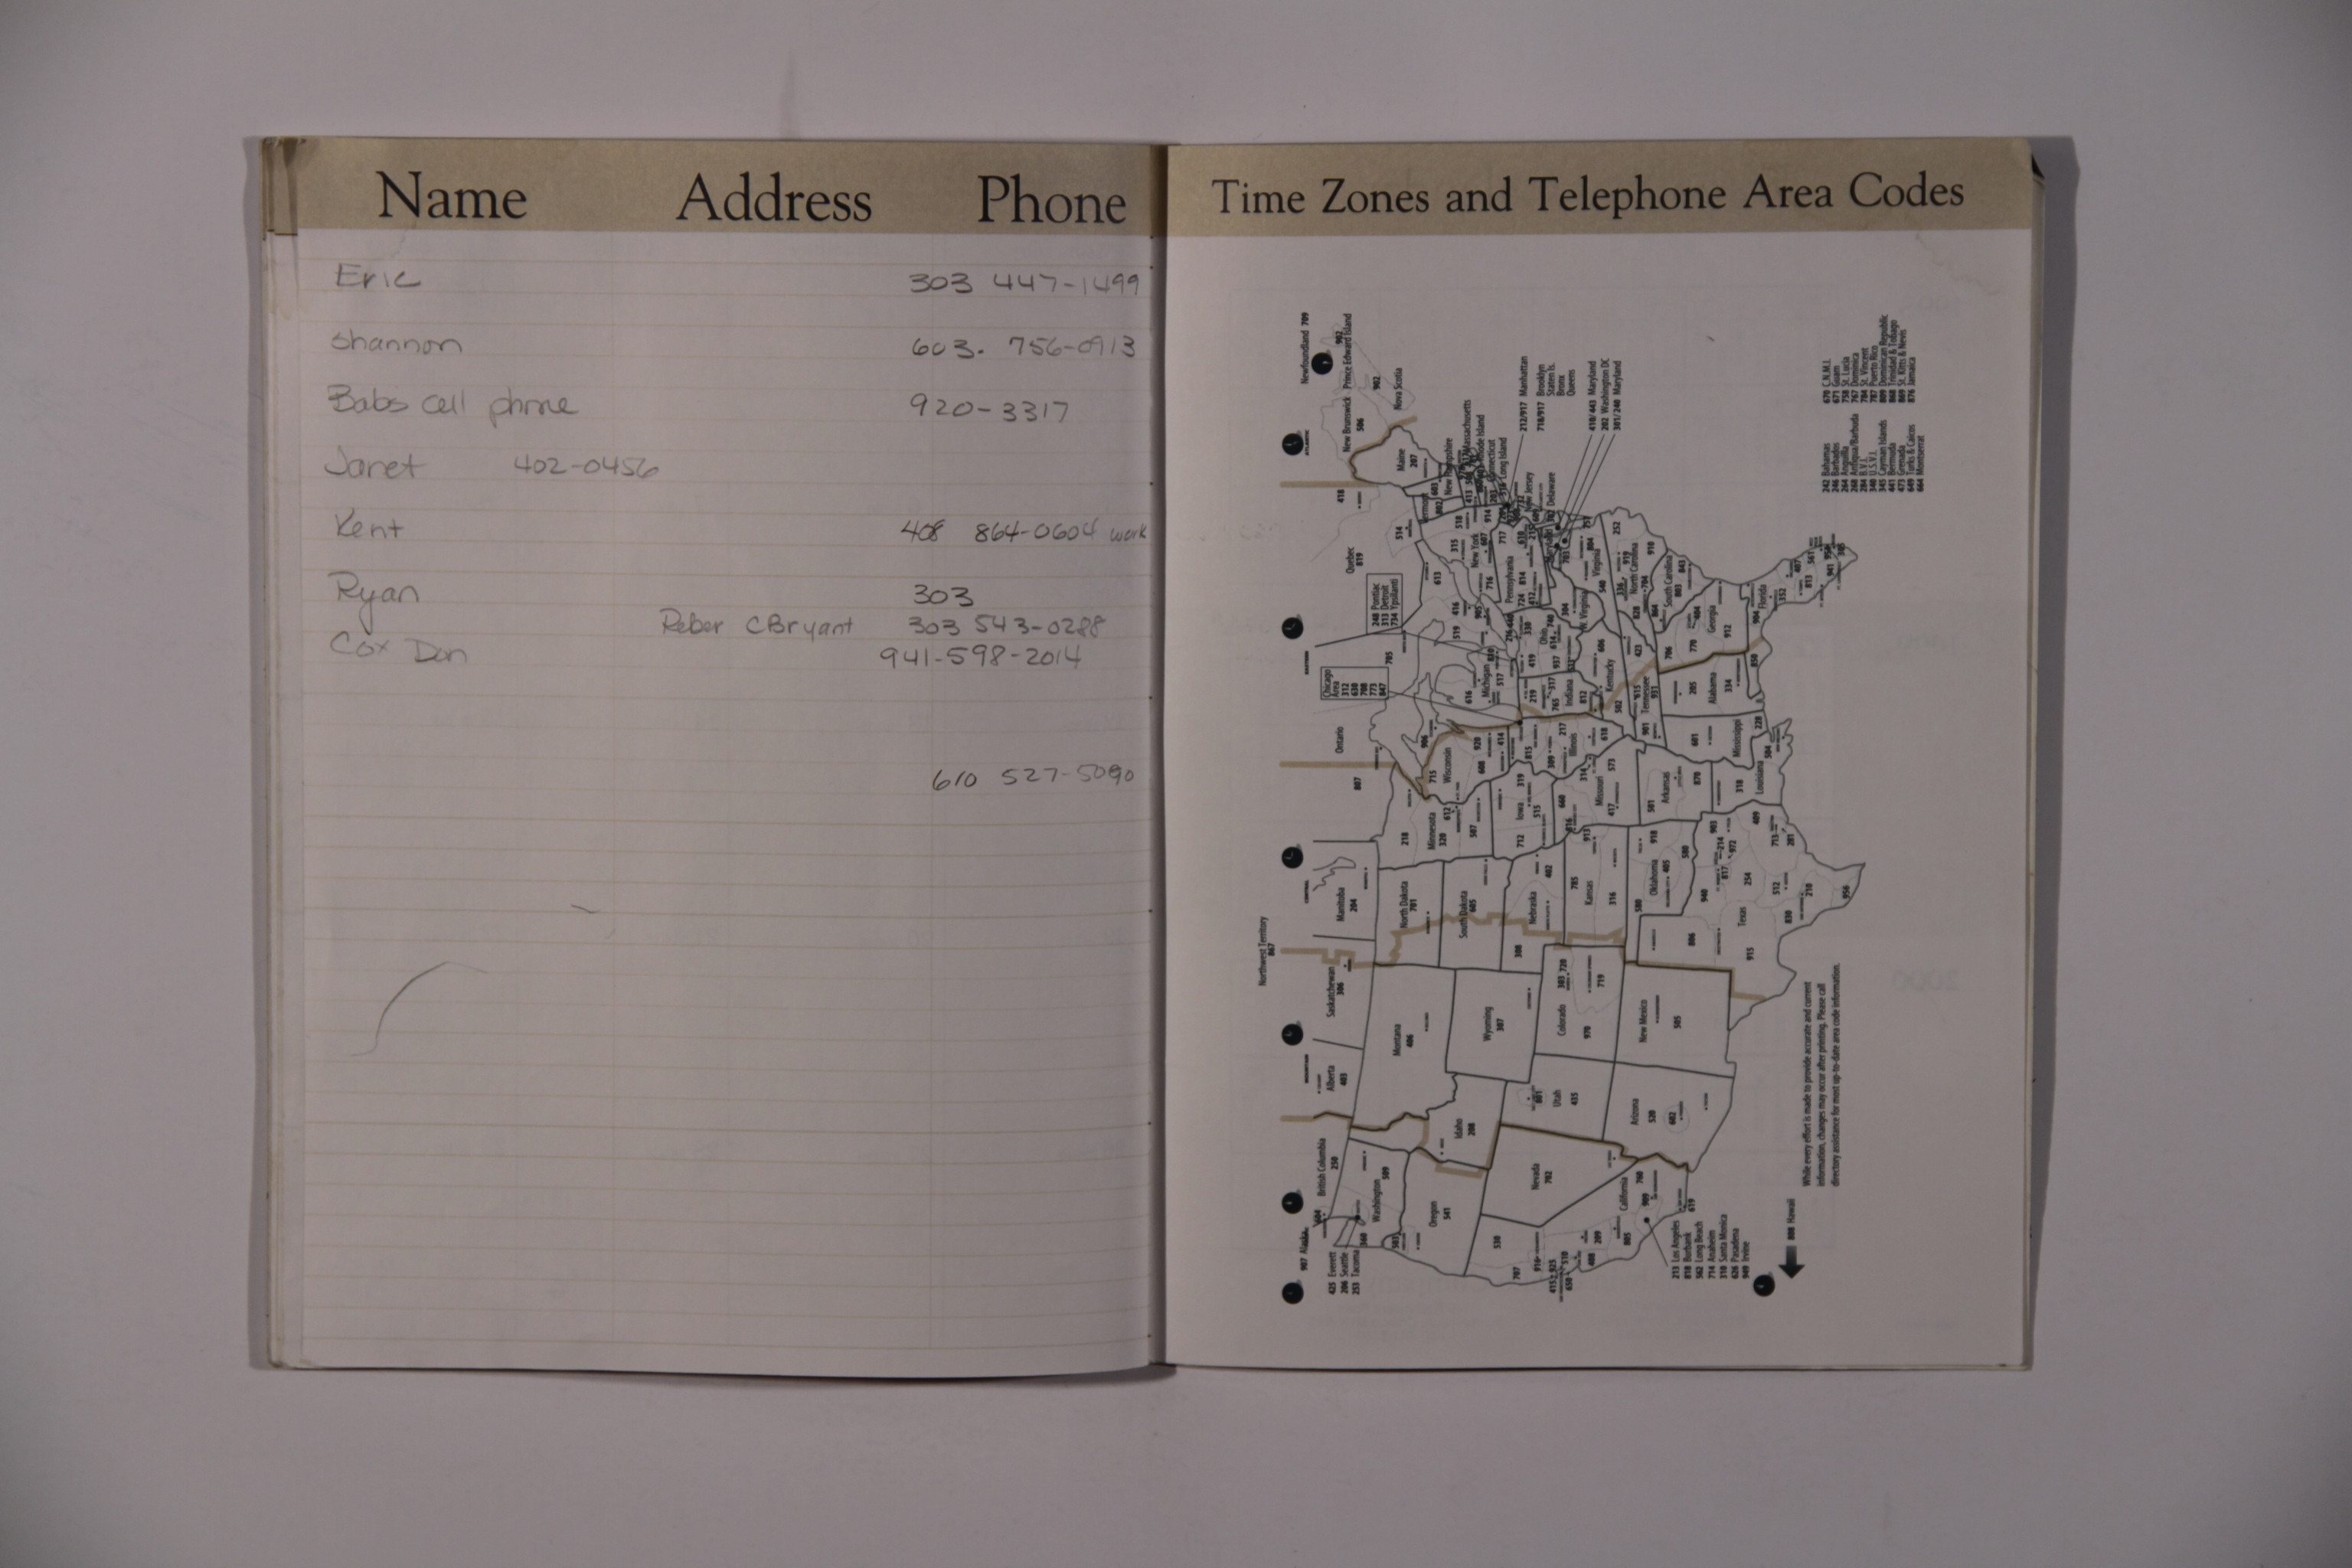 Name Address Phone
Eric 303 447-1499
Shannon 603. 756-0913
Babs cell phone 920-3317
Janet 402-0456
Kent 408 864-0604 work
Ryan 303
Reber CBryant 303 543-0288
Cox Dan 941-598-2014
610 527-5090
Time Zones and Telephone Area Codes
Newfoundland 709
902
Prince Edward Island
902
Nova Scotia
New Brunswick
506
Maine
207
418
514
Quebec
819
613
248 Pontiac
313 Detroit
734 Ypsilanti
Chicago
Area
312
630
708
773
847
705
Ontario
807
Manitoba
204
Northwest Territory
867
Saskatchewan
306
Alberta
403
British Columbia
250
604
907 Alaska
425 Everett
206 Seattle
253 Tacoma
360
Washington
509
Oregon
541
503
Idaho
208
Montana
406
Wyoming
307
North Dakota
701
South Dakota
605
Nebraska
402
308
Minnesota
218
320
612
507
Wisconsin
715
920
414
608
906
Michigan
616
517
Iowa
319
515
712
Illinois
217
309
815
618
Indiana
219
765
317
812
Ohio
419
937
330
740
614
Kentucky
606
502
Tennessee
423
615
931
901
W. Virginia
304
Virginia
540
804
757
703
North Carolina
252
919
910
336
704
828
South Carolina
864
803
843
Georgia
706
770
404
912
Florida
904
352
407
813
561
941
850
Alabama
205
334
Mississippi
601
228
Louisiana
318
504
Arkansas
501
870
Missouri
660
816
573
314
417
Kansas
785
913
316
Oklahoma
918
405
580
Texas
903
214
972
817
940
254
409
713
281
512
210
830
956
915
806
Colorado
303 720
719
970
New Mexico
505
Utah
801
435
Arizona
520
602
Nevada
702
California
760
909
619
805
209
408
510
530
707
916
415
925
650
New York
518
315
607
716
914
Pennsylvania
717
610
215
814
724
412
New Hampshire
603
Massachusetts
413
Rhode Island
Connecticut
Long Island
New Jersey
Delaware
212/917 Manhattan
718/917 Brooklyn
Staten Is.
Bronx
Queens
410/443 Maryland
202 Washington DC
301/240 Maryland
242 Bahamas
246 Barbados
264 Anguilla
268 Antigua/Barbuda
284 B.V.I.
340 U.S.V.I.
345 Cayman Islands
441 Bermuda
473 Grenada
649 Turks & Caicos
664 Montserrat
670 C.N.M.I.
671 Guam
758 St. Lucia
767 Dominica
784 St. Vincent
787 Puerto Rico
809 Dominican Republic
868 Trinidad & Tobago
869 St. Kitts & Nevis
876 Jamaica
213 Los Angeles
818 Burbank
562 Long Beach
714 Anaheim
310 Santa Monica
626 Pasadena
949 Irvine
808 Hawaii
While every effort is made to provide accurate and current
information, changes may occur after printing. Please call
directory assistance for most up-to-date area code information.